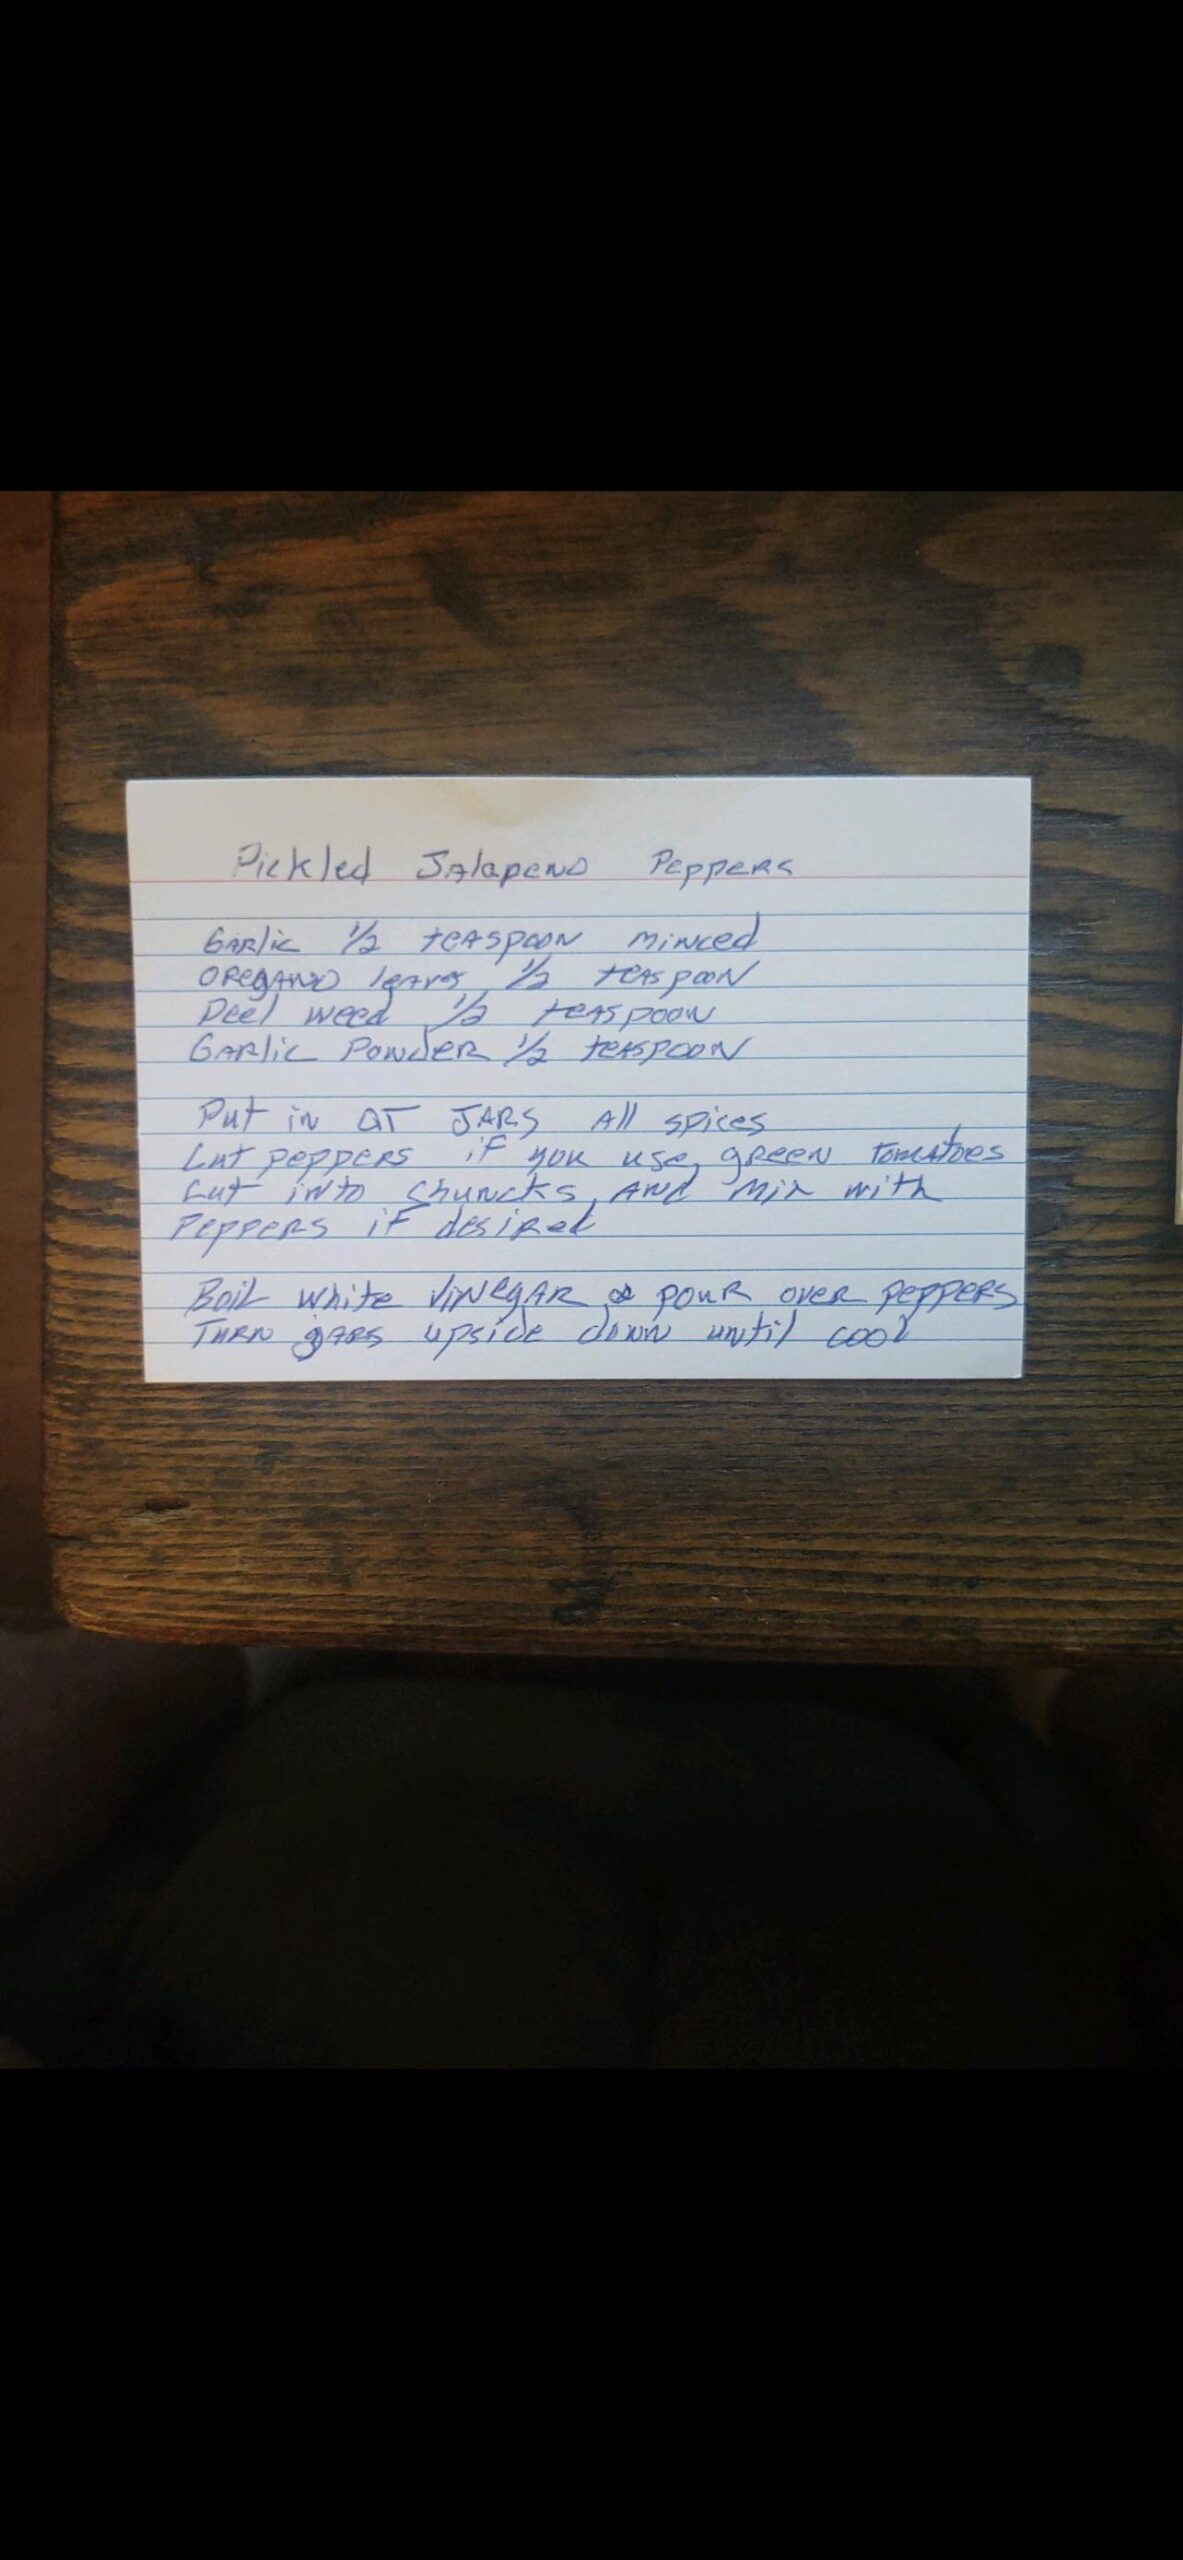 Pickled Jalapeno Peppers
Garlic 1/2 teaspoon minced
Oregano leaves 1/2 teaspoon
Deel weed 1/2 teaspoon
Garlic Powder 1/2 teaspoon
Put in QT JARS All spices
Cut peppers if you use green tomatoes
Cut into chuncks, and mix with
Peppers if desired
Boil white vinegar & pour over peppers
Turn jars upside down until cool